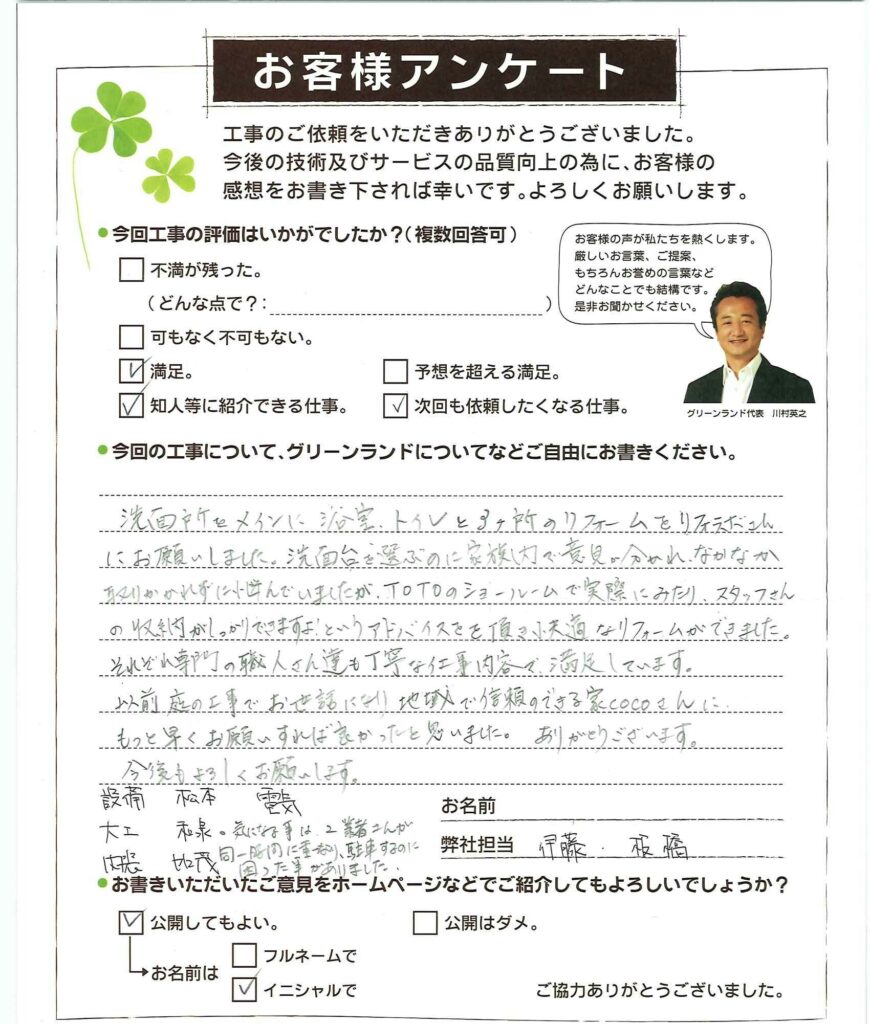 お客様アンケート
工事のご依頼をいただきありがとうございました。
今後の技術及びサービスの品質向上の為に、お客様の
感想をお書き下されば幸いです。よろしくお願いします。
今回工事の評価はいかがでしたか？（複数回答可）
お客様の声が私たちを熱くします。
厳しいお言葉、ご提案、
もちろんお誉めの言葉など
どんなことでも結構です。
是非お聞かせください。
不満が残った。
（どんな点で？：　）
可もなく不可もない。
満足。　予想を超える満足。
知人等に紹介できる仕事。　次回も依頼したくなる仕事。
グリーンランド代表　川村英之
今回の工事について、グリーンランドについてなどご自由にお書きください。
洗面所をメインに浴室、トイレと3ヶ所のリフォームを
にお願いしました。洗面台を選ぶのに家族内で意見が分かれ、なかなか
取りかかれずに悩んでいましたが、TOTOのショールームで実際にみたり、スタッフさん
の収納がしっかりできますよ!というアドバイスをを頂き快適なリフォームができました。
それぞれ専門の職人さん達も丁寧な仕事内容で、満足しています。
以前庭の工事でお世話になり地域で信頼のできる家cocoさんに
もっと早くお願いすれば良かったと思いました。ありがとうございます。
今後もよろしくお願いします。
設備　松本　電気
大工　和泉　。気になる事は、2業者さんが
内装　加茂　同一時間に重なり、駐車するのに
困った事がありました。
お名前
弊社担当　伊藤．板橋
お書きいただいたご意見をホームページなどでご紹介してもよろしいでしょうか？
公開してもよい。　公開はダメ。
お名前は　フルネームで
イニシャルで
ご協力ありがとうございました。